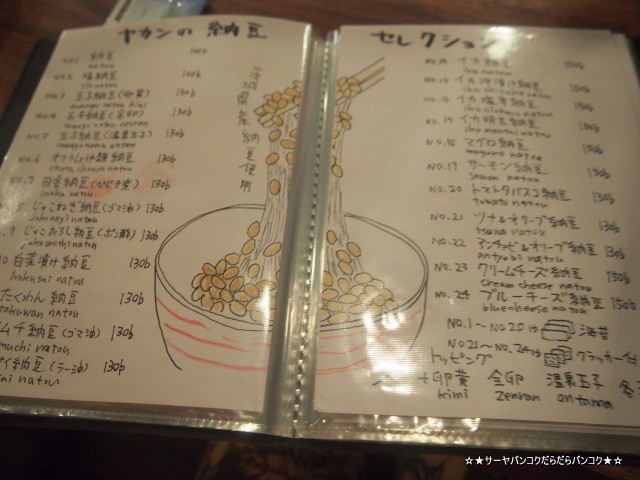 ヤカンの 納豆
NO.1 納豆 100b
natou
NO.2 塩納豆 100b
NO.3 玉子納豆(卵黄) 130b
tamago natou kimi
NO.4 玉子納豆(全卵) 130b
NO.5 玉子納豆(温泉玉子) 130b
NO.6 オクラしょうが麹納豆 130b
NO.7 田舎納豆(ひじき煮) 130b
inaka natou
8 じゃこねぎ納豆(ゴマ油) 130b
jakonegi natou
9 じゃこおろし納豆(ポン酢) 130b
10 白菜漬け納豆 130b
hakusai natou
たくわん 納豆 130b
takuwan natou
ムチ納豆(ゴマ油) 130b
muchi natou
納豆(ラー油) 130b
natou
納豆使用
セレクション
NO.14 イカ納豆 150b
ika natou
NO.15 イカ沖漬け納豆
NO.16 イカ塩辛納豆
NO.17 イカ明太納豆
ika mentai natou
NO.18 マグロ納豆
maguro natou
NO.19 サーモン納豆
samon natou
NO.20 トマトタバスコ納豆 130b
tomato natou
NO.21 ツナ&オリーブ納豆 130b
tsuna natou
NO.22 アンチョビ&オリーブ納豆 130b
antyobi natou
NO.23 クリームチーズ納豆 150b
cream cheese natou
NO.24 ブルーチーズ納豆 150b
blue cheese natou
NO.1〜NO.20は 海苔
NO.21〜NO.24は クラッカー付
トッピング
+卵黄 全卵 温泉玉子 各
kimi zenran ontama
☆★サーヤバンコクだらだらバンコク★☆